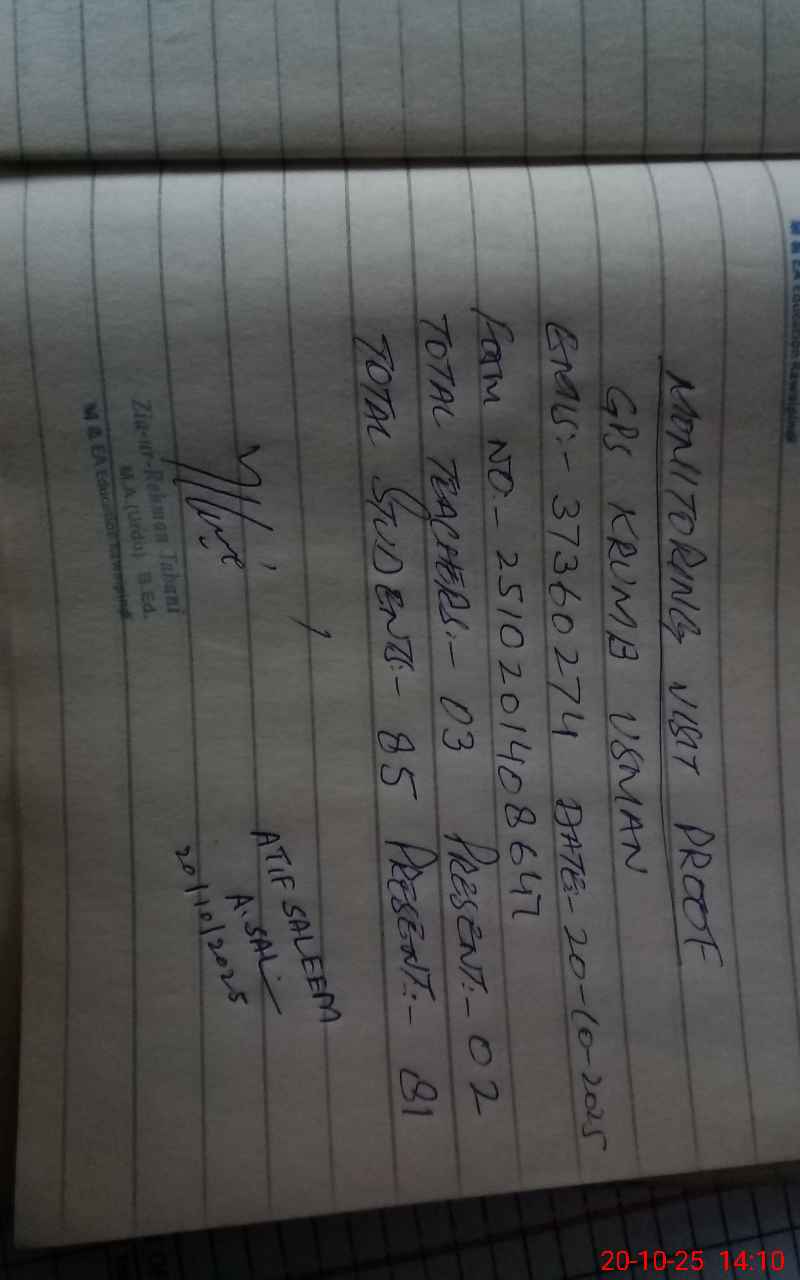 MONITORING VISIT PROOF
GPS KRUMB USMAN
EMIS:- 37360274 DATE:- 20-10-2025
FORM NO.- 2510201408647
TOTAL TEACHERS:- 03 PRESENT:- 02
TOTAL STUDENTS:- 85 PRESENT:- 81
ATIF SALEEM
A. SAL
20/10/2025
Zia-ur-Rehman Tabani
M.A (Urdu) B.Ed.
M & EA Education Rawalpindi
M & EA Education Rawalpindi
20-10-25 14:10